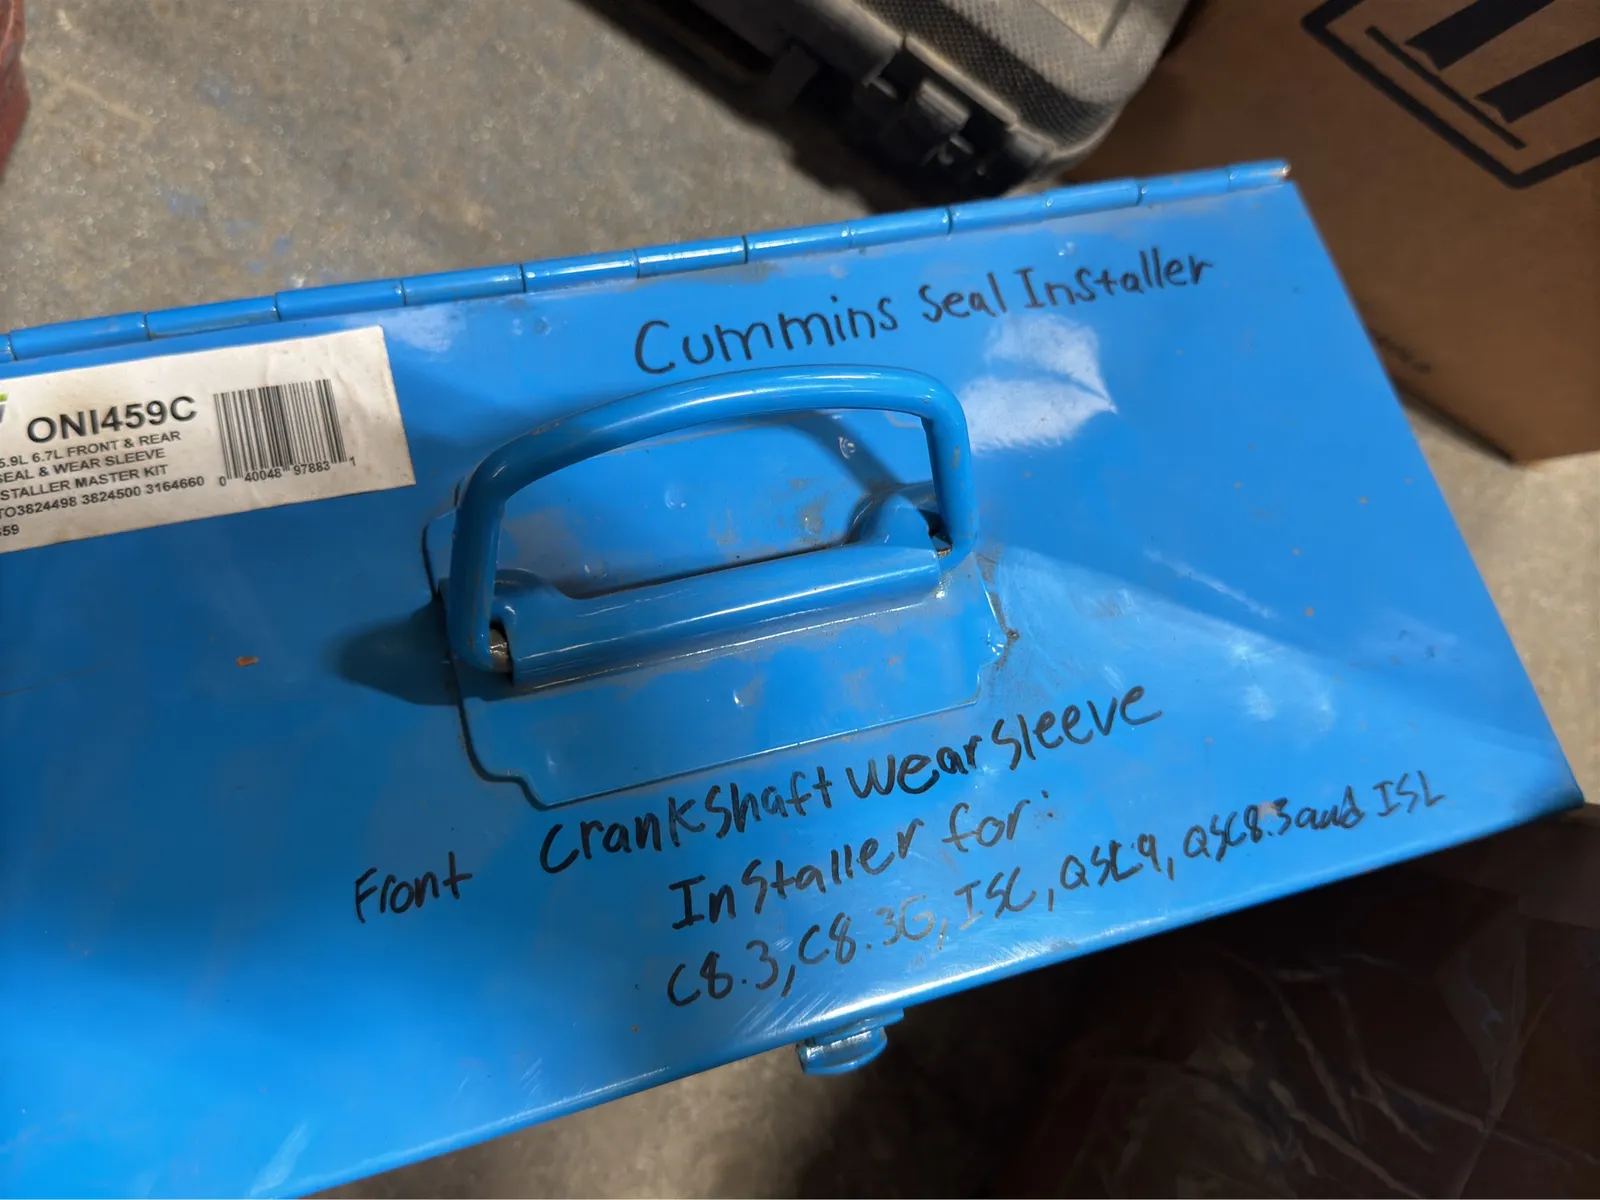 Cummins Seal Installer
ONI459C
5.9L 6.7L FRONT & REAR
SEAL & WEAR SLEEVE
STALLER MASTER KIT
TO3824498 3824500 3164660
59
0 40048 97883 1
Front Crankshaft Wear Sleeve
Installer for:
C8.3, C8.3G, ISC, QSL9, QSC8.3 and ISL